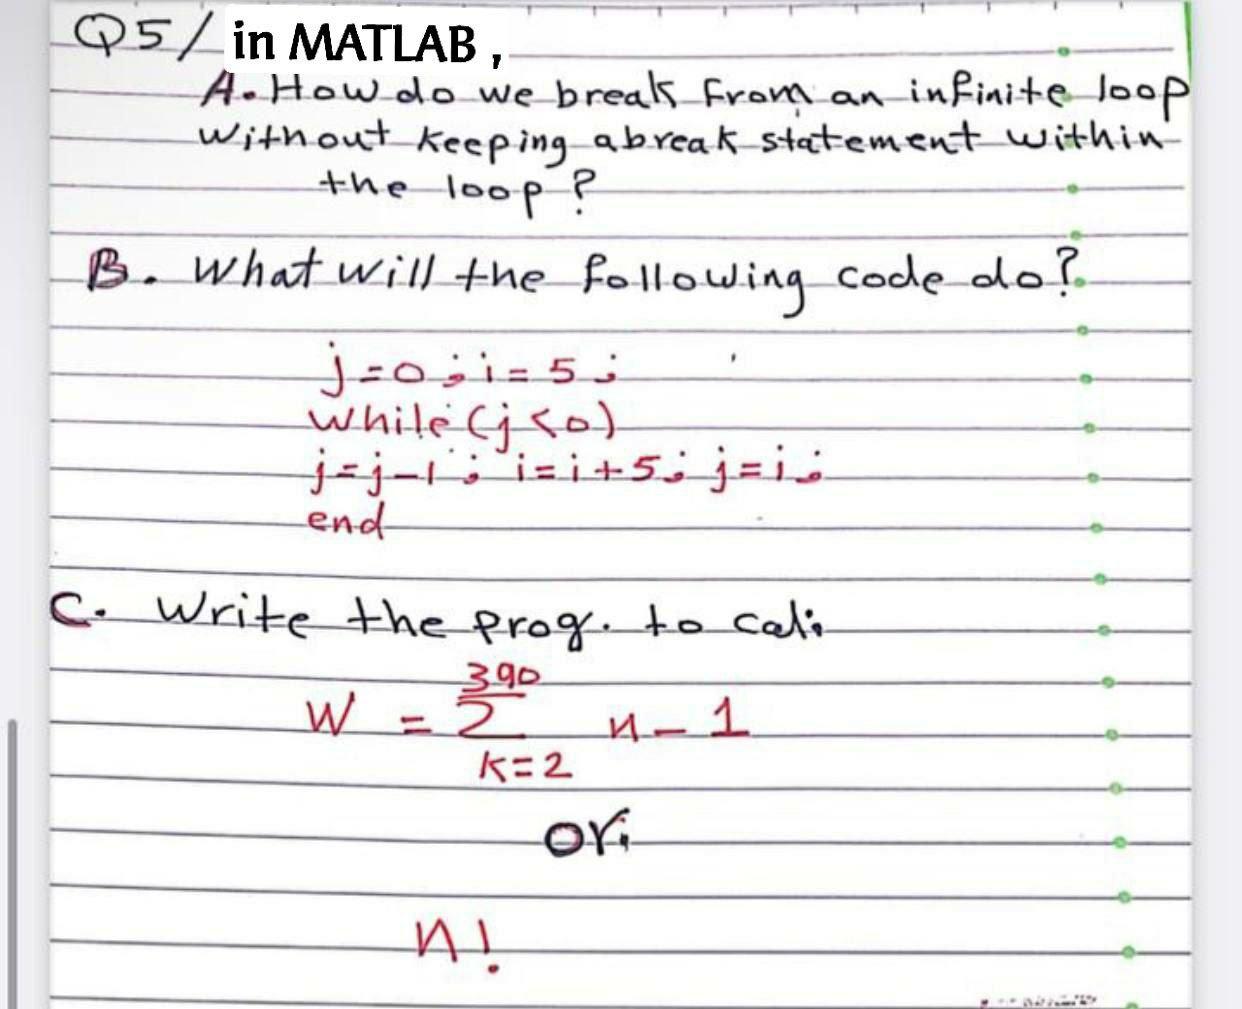 Q5/ in MATLAB,
A. How do we break from an infinite loop
without keeping a break statement within
the loop?
B. What will the following code do?
j=0; i=5;
while (j<0)
j=j-1; i=i+5; j=i;
end
C. Write the prog. to cal:
390
W = Σ n-1
k=2
or:
n!